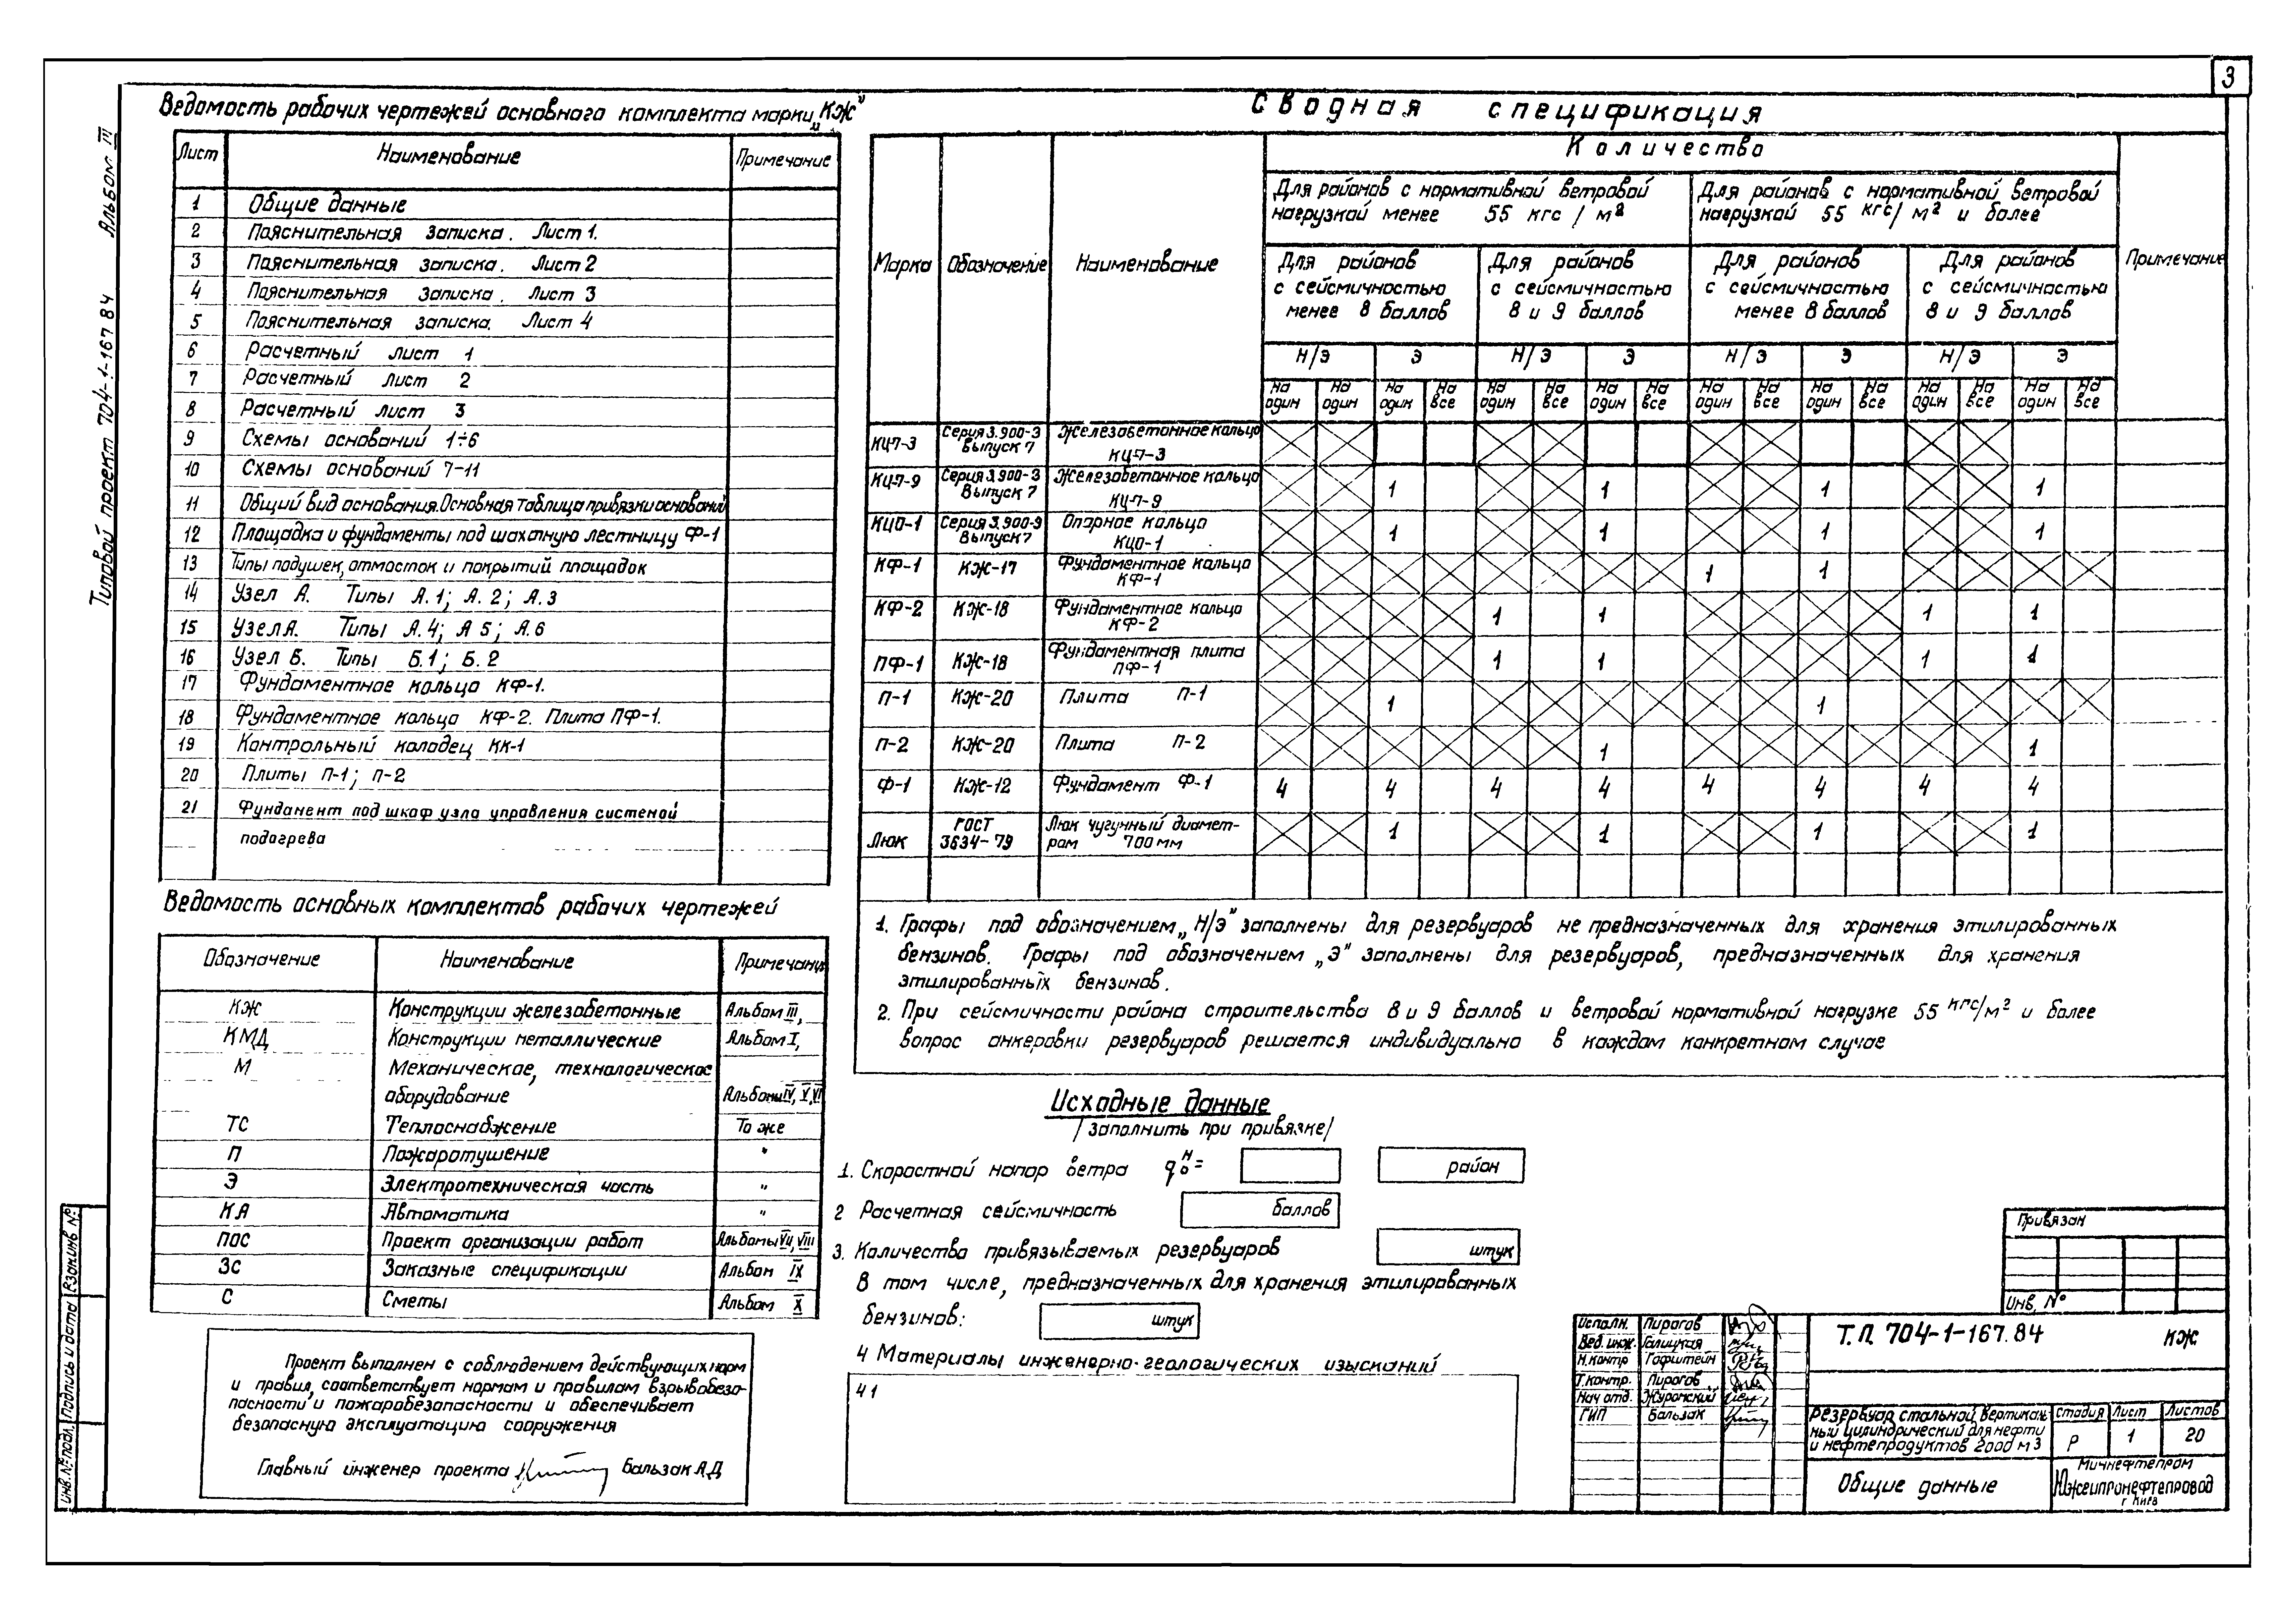 3
Альбом III
Типовой проект 704-1-167 84
Ведомость рабочих чертежей основного комплекта марки „КЖ"
Лист Наименование Примечание
1 Общие данные
2 Пояснительная записка. Лист 1.
3 Пояснительная записка. Лист 2
4 Пояснительная записка. Лист 3
5 Пояснительная записка. Лист 4
6 Расчетный лист 1
7 Расчетный лист 2
8 Расчетный лист 3
9 Схемы оснований 1÷6
10 Схемы оснований 7-11
11 Общий вид основания. Основная таблица привязки оснований
12 Площадка и фундаменты под шахтную лестницу Ф-1
13 Типы подушек, отмосток и покрытий площадок
14 Узел А. Типы А.1; А.2; А.3
15 Узел А. Типы А.4; А 5; А.6
16 Узел Б. Типы Б.1; Б.2
17 Фундаментное кольцо КФ-1.
18 Фундаментное кольцо КФ-2. Плита ПФ-1.
19 Контрольный колодец КК-1
20 Плиты П-1; П-2
21 Фундамент под шкаф узла управления системой
подогрева
Ведомость основных комплектов рабочих чертежей
Обозначение Наименование Примечани
КЖ Конструкции железобетонные Альбом III,
КМД Конструкции металлические Альбом I,
М Механическое, технологическое
оборудование Альбомы IV, V, VI
ТС Теплоснабжение То же
П Пожаротушение "
Э Электротехническая часть "
КА Автоматика "
ПОС Проект организации работ Альбомы VII, VIII
ЗС Заказные спецификации Альбом IX
С Сметы Альбом X
Проект выполнен с соблюдением действующих норм
и правил, соответствует нормам и правилам взрывобезо-
пасности и пожаробезопасности и обеспечивает
безопасную эксплуатацию сооружения
Главный инженер проекта Бальзак А.Д
Сводная спецификация
Марка Обозначение Наименование Количество Примечание
Для районов с нормативной ветровой Для районов с нормативной ветровой
нагрузкой менее 55 кгс/м² нагрузкой 55 кгс/м² и более
Для районов Для районов Для районов Для районов
с сейсмичностью с сейсмичностью с сейсмичностью с сейсмичностью
менее 8 баллов 8 и 9 баллов менее 8 баллов 8 и 9 баллов
Н/Э Э Н/Э Э Н/Э Э Н/Э Э
На На На На На На На На На На На На На На На На
один один один все один все один все один все один все один все один все
КЦ-7-3 Серия 3.900-3 Железобетонное кольцо
Выпуск 7 КЦ-7-3
КЦ-7-9 Серия 3.900-3 Железобетонное кольцо
Выпуск 7 КЦ-7-9 1 1 1 1
КЦО-1 Серия 3.900-3 Опорное кольцо
Выпуск 7 КЦО-1 1 1 1 1
КФ-1 КЖ-17 Фундаментное кольцо
КФ-1 1 1
КФ-2 КЖ-18 Фундаментное кольцо
КФ-2 1 1 1 1
ПФ-1 КЖ-18 Фундаментная плита
ПФ-1 1 1 1 1
П-1 КЖ-20 Плита П-1 1 1
П-2 КЖ-20 Плита П-2 1 1
Ф-1 КЖ-12 Фундамент Ф-1 4 4 4 4 4 4 4 4
Люк ГОСТ Люк чугунный диамет-
3634-79 ром 700 мм 1 1 1 1
1. Графы под обозначением „Н/Э" заполнены для резервуаров не предназначенных для хранения этилированных
бензинов. Графы под обозначением „Э" заполнены для резервуаров, предназначенных для хранения
этилированных бензинов.
2. При сейсмичности района строительства 8 и 9 баллов и ветровой нормативной нагрузке 55 кгс/м² и более
вопрос анкеровки резервуаров решается индивидуально в каждом конкретном случае
Исходные данные
/заполнить при привязке/
1. Скоростной напор ветра q₀ᴴ= район
2 Расчетная сейсмичность баллов
3. Количества привязываемых резервуаров штук
В том числе, предназначенных для хранения этилированных
бензинов: штук
4 Материалы инженерно-геологических изысканий
4 1
Привязан
Инв. №
Исполн. Пирогов
Вед. инж. Галицкая
Н.контр Гофштейн
Т.контр. Пирогов
Нач отд. Журомский
ГИП Бальзак
Т.П. 704-1-167.84 КЖ
Резервуар стальной вертикаль-
ный цилиндрический для нефти
и нефтепродуктов 2000 м3
Стадия Лист Листов
Р 1 20
Общие данные
Миннефтепром
Южгипронефтепровод
г Киев
Инв. № подл. Подпись и дата Взам.инв №